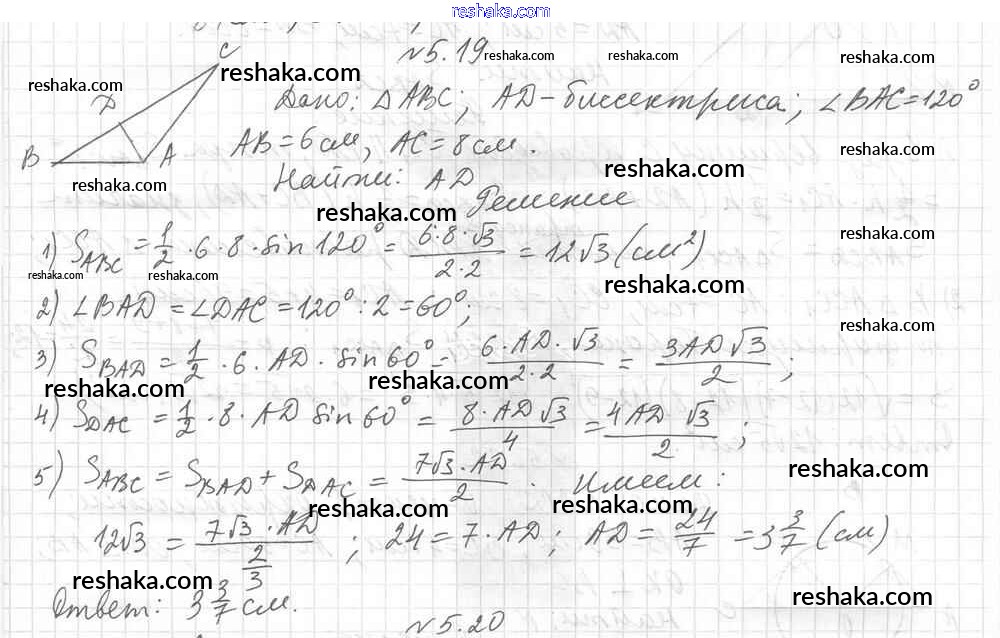 reshaka.com
№5.19
C
reshaka.com reshaka.com reshaka.com reshaka.com
Дано: △ABC; AD-биссектриса; ∠BAC=120°
D
reshaka.com reshaka.com
AB=6см, AC=8см.
B A
reshaka.com reshaka.com
Найти: AD
reshaka.com
Решение
reshaka.com
1) S_ABC = 1/2 · 6 · 8 · sin 120° = 6·8·√3 / 2·2 = 12√3 (см²)
reshaka.com
reshaka.com reshaka.com reshaka.com
2) ∠BAD = ∠DAC = 120° : 2 = 60°;
reshaka.com
3) S_BAD = 1/2 · 6 · AD · sin 60° = 6·AD·√3 / 2·2 = 3AD√3 / 2 ;
reshaka.com reshaka.com
4) S_DAC = 1/2 · 8 · AD sin 60° = 8·AD√3 / 4 = 4AD √3 / 2 ;
reshaka.com
5) S_ABC = S_BAD + S_DAC = 7√3·AD / 2 . Имеем:
reshaka.com
reshaka.com reshaka.com
12√3 = 7√3·AD / 2 ; 24 = 7·AD; AD = 24/7 = 3 3/7 (см)
3
reshaka.com reshaka.com
Ответ: 3 3/7 см.
№5.20